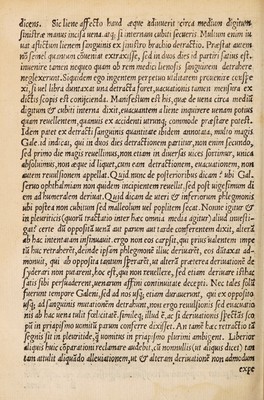 dicens. Sic liene affecto haud æque adiuueris circa medium digitum
sinistræ manus incisa uena, atq; si internam cubiti secueris. Multum enim iu
uat afflictum lienem sanguinis ex sinistro brachio detractio. Præstat autem
nõ semel quantum conueniat extraxisse, sed in duos dies id partiri satius est.
inuenere tamen nequeo quam ob rem medici lienosis sanguinem detrahere
neglexerunt. Siquidem ego ingentem perpetuo utilitatem prouenire conspe
xi, si uel libra duntaxat una detracta foret, uacuationis tamen mensura ex
dictis scopis est conijcienda. Manifestum est his, quæ de uena circa mediũ
digitum & cubiti interna dixit, euacuantem a liene inquirere uenam potius
quam reuellentem, quamuis ex accidenti utrinq; commode præstare potest.
Idem patet ex detractis sanguinis quantitate ibidem annotata, multo magis
Gale. id indicat, qui in duos dies detractionem partitur, non enim secundo,
sed primo die magis reuellimus, non etiam in diuersas uices sistimur, unica
absoluimus, non æque id liquet, cum eam detractionem, euacuationem, non
autem reuulsionem appellat. Quid nunc de posterioribus dicam? ubi Gal.
seruo ophthalmiam non quidem incipientem reuellit, sed post uigesimum di
em ad humeralem deriuat. Quid dicam de uteri & inferiorum phlegmonis
ubi postea non cubitum sed malleolum uel poplitem secat. Nonne igitur &
in pleuriticis (quorũ tractatio inter hæc omnia media agitur) aliud inuesti
gat? certe dũ opposità uenã aut parum aut tarde conferentem dixit, alterã
ab hac intentione infamauit. ergo non eos carpsit, qui prius ualentem impe
tũ huc retrahere, deinde ipsum phlegmonẽ illuc deriuare, docebant: at eos ad
monuit, qui ab opposita tantum sperarẽt, ut alterã præterea deriuationẽ de
syderari non putarent, hoc est, qui non reuellere, sed etiam deriuare isthac
satis sibi persuaderent, uenarum affini continuitate decepti. Nec tales solũ
fuerunt tempore Galeni, sed ad nos usq; etiam deriuarunt, qui ex opposita
usq; ad sanguinis mutationẽm detrahunt, nos ergo reuulsionis sed euacuatio
nis ab hac uena tulit focilicet. simileq; illud ẽ, ac si deriuationis spectãs sco
pũ in priapismo uomitũ parum conferre dixisset. An tamẽ hac retractio tã
segnis sit in pleuritide, q̃ uomitus in priapismo plurimi ambigent. Liberior
aliquis huic cõparationi reclamare audebit, cũ nonnullis (ut aliquis dicet) tan
tam attulit aliquãdo alleuiationem, ut & alteram deriuationẽ non admodum
expe